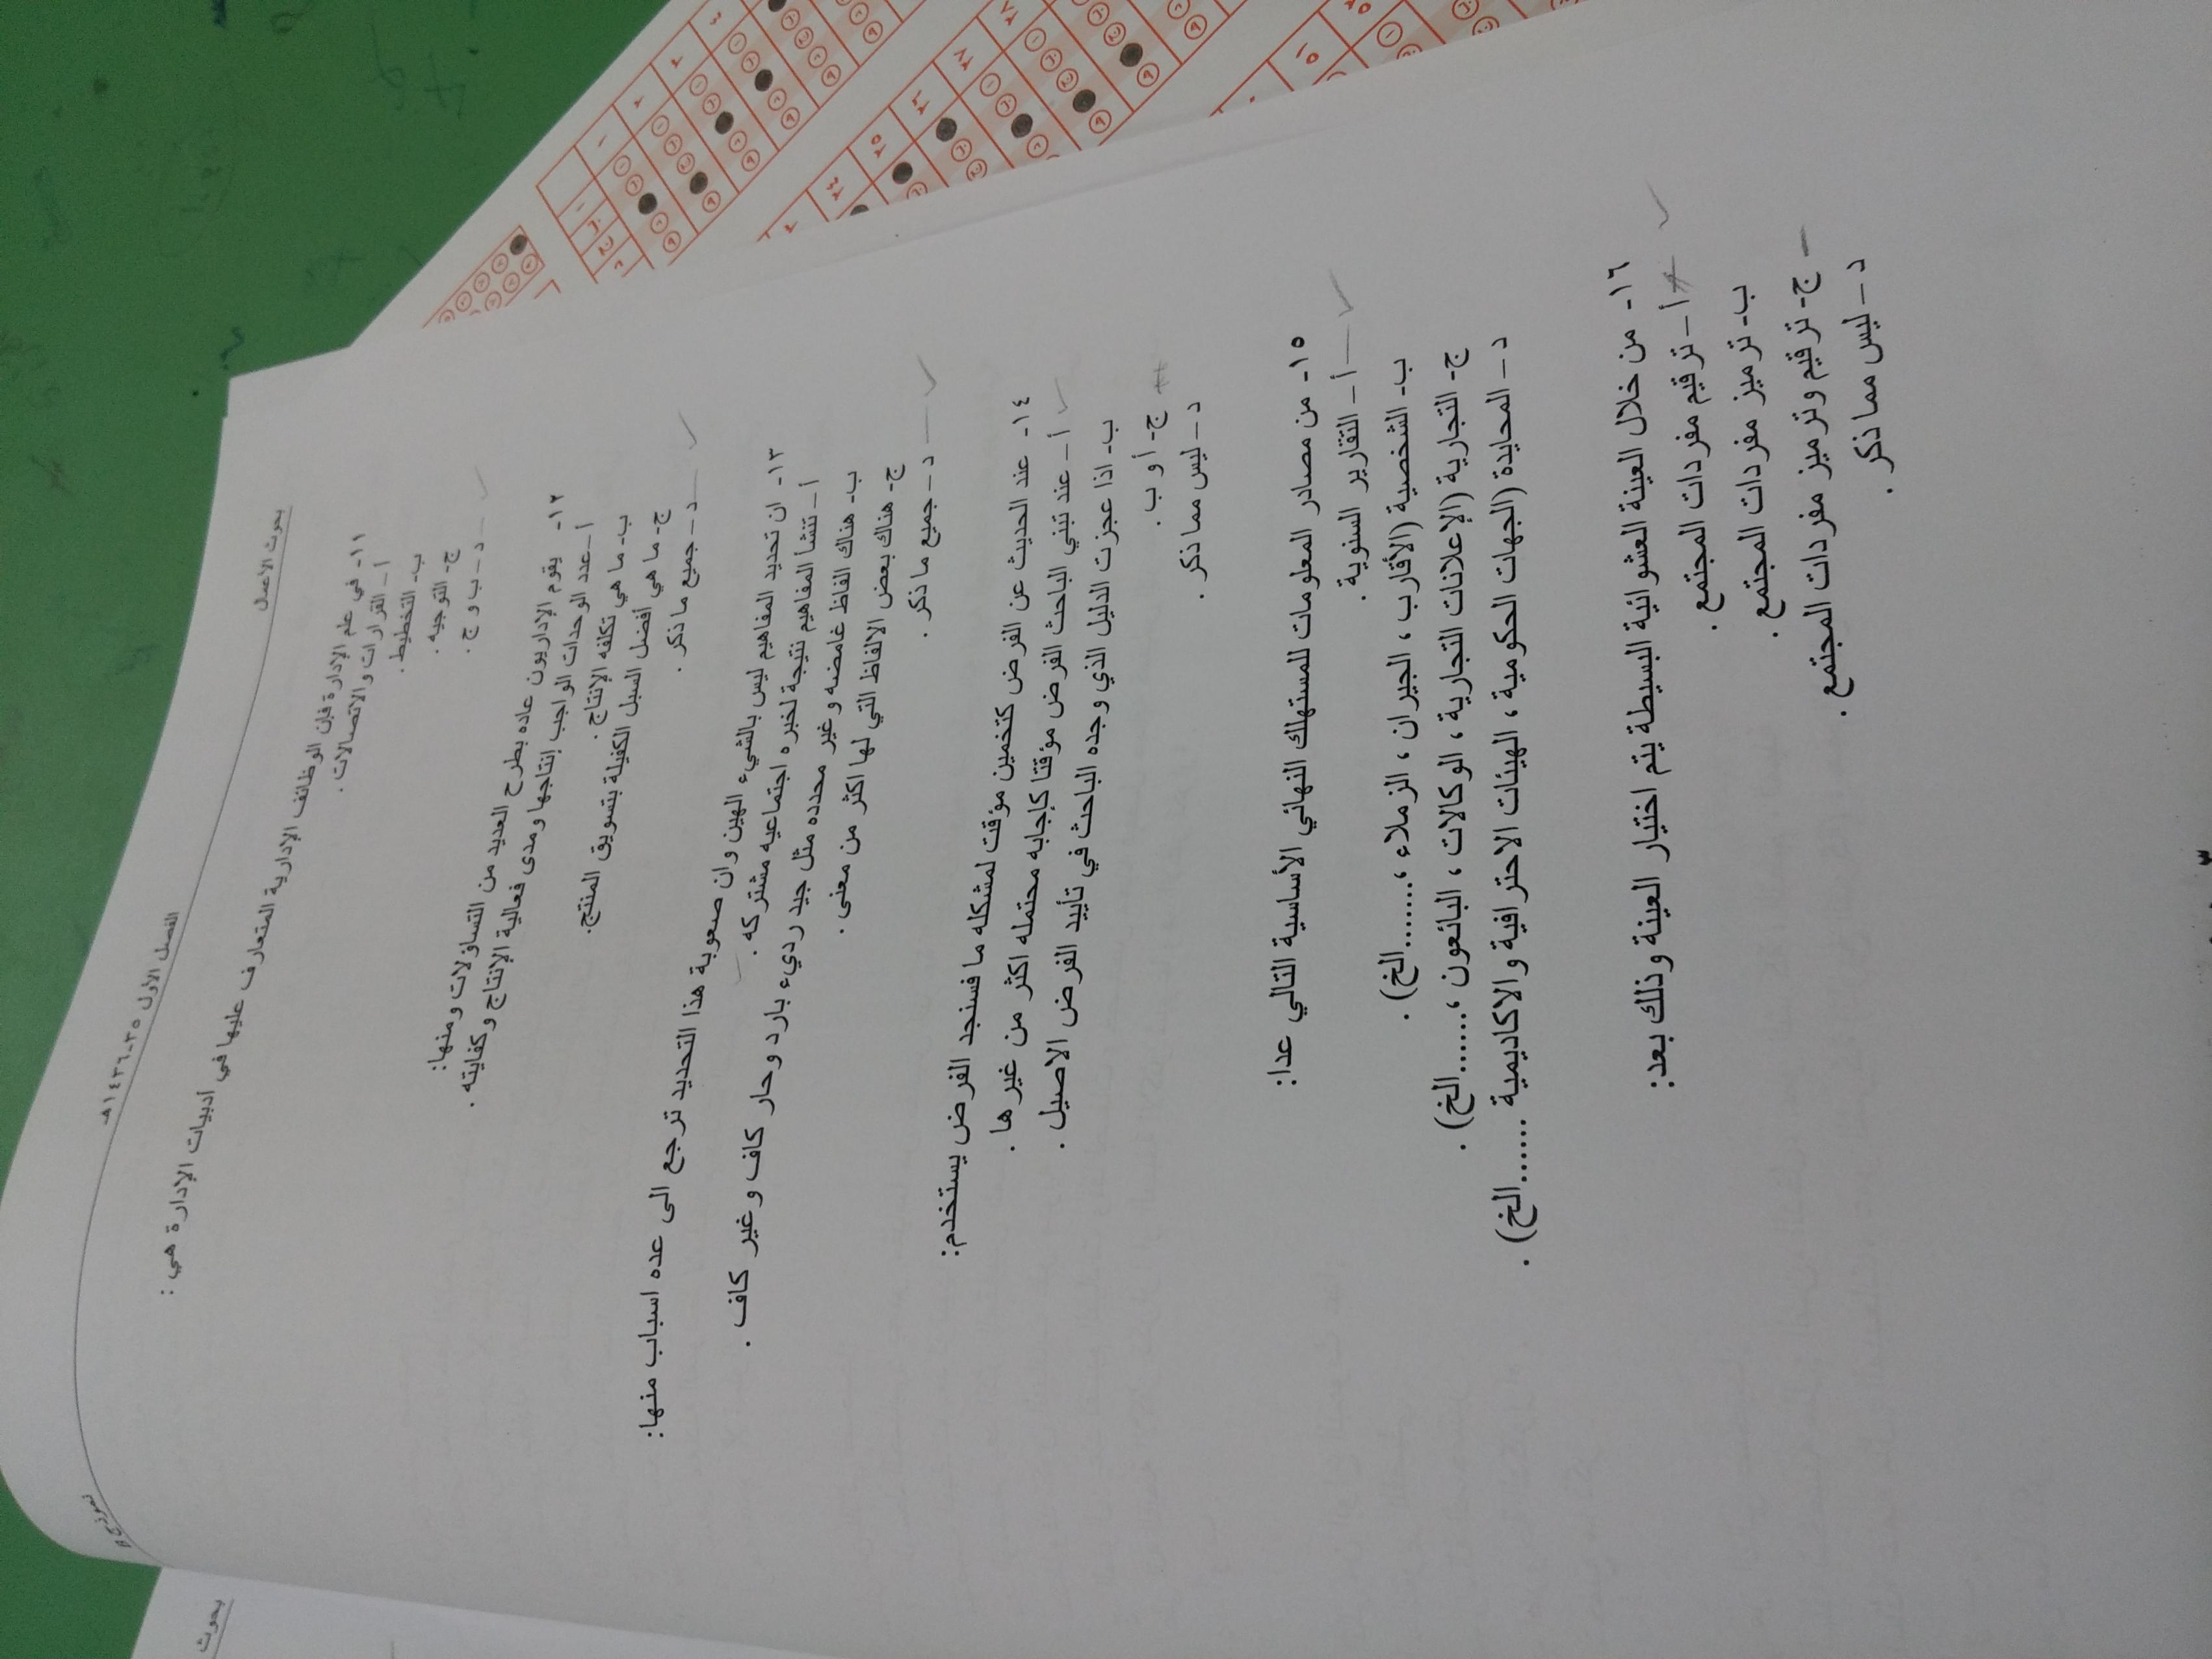 بحوث الأعمال
الفصل الأول ٣٥-١٤٣٦هـ
نموذج A
١١- في علم الإدارة فإن الوظائف الإدارية المتعارف عليها في أدبيات الإدارة هي :
أ – القرارات والاتصالات .
ب- التخطيط .
ج- التوجيه .
د – ب و ج .
١٢- يقوم الإداريون عاده بطرح العديد من التساؤلات ومنها:
أ –عدد الوحدات الواجب إنتاجها ومدى فعالية الإنتاج وكفايته .
ب- ما هي تكلفه الإنتاج .
ج- ما هي أفضل السبل الكفيلة بتسويق المنتج.
د – جميع ما ذكر .
١٣- ان تحديد المفاهيم ليس بالشيء الهين وان صعوبة هذا التحديد ترجع الى عده اسباب منها:
أ – تنشأ المفاهيم نتيجة لخبره اجتماعيه مشتركه .
ب- هناك الفاظ غامضه وغير محدده مثل جيد رديء بارد وحار كاف وغير كاف .
ج- هناك بعض الالفاظ التي لها اكثر من معنى .
د – جميع ما ذكر .
١٤- عند الحديث عن الفرض كتخمين مؤقت لمشكله ما فسنجد الفرض يستخدم:
أ – عند تبني الباحث الفرض مؤقتا كإجابه محتمله اكثر من غيرها .
ب- اذا عجزت الدليل الذي وجده الباحث في تأييد الفرض الاصيل .
ج- أ و ب .
د – ليس مما ذكر .
١٥- من مصادر المعلومات للمستهلك النهائي الأساسية التالي عدا:
أ – التقارير السنوية .
ب- الشخصية (الأقارب ، الجيران ، الزملاء ،.......الخ) .
ج- التجارية (الإعلانات التجارية ، الوكالات ، البائعون ،.......الخ) .
د – المحايدة (الجهات الحكومية ، الهيئات الاحترافية والاكاديمية .......الخ) .
١٦- من خلال العينة العشوائية البسيطة يتم اختيار العينة وذلك بعد:
أ – ترقيم مفردات المجتمع .
ب- ترميز مفردات المجتمع .
ج- ترقيم وترميز مفردات المجتمع .
د – ليس مما ذكر .
٣
بحوث